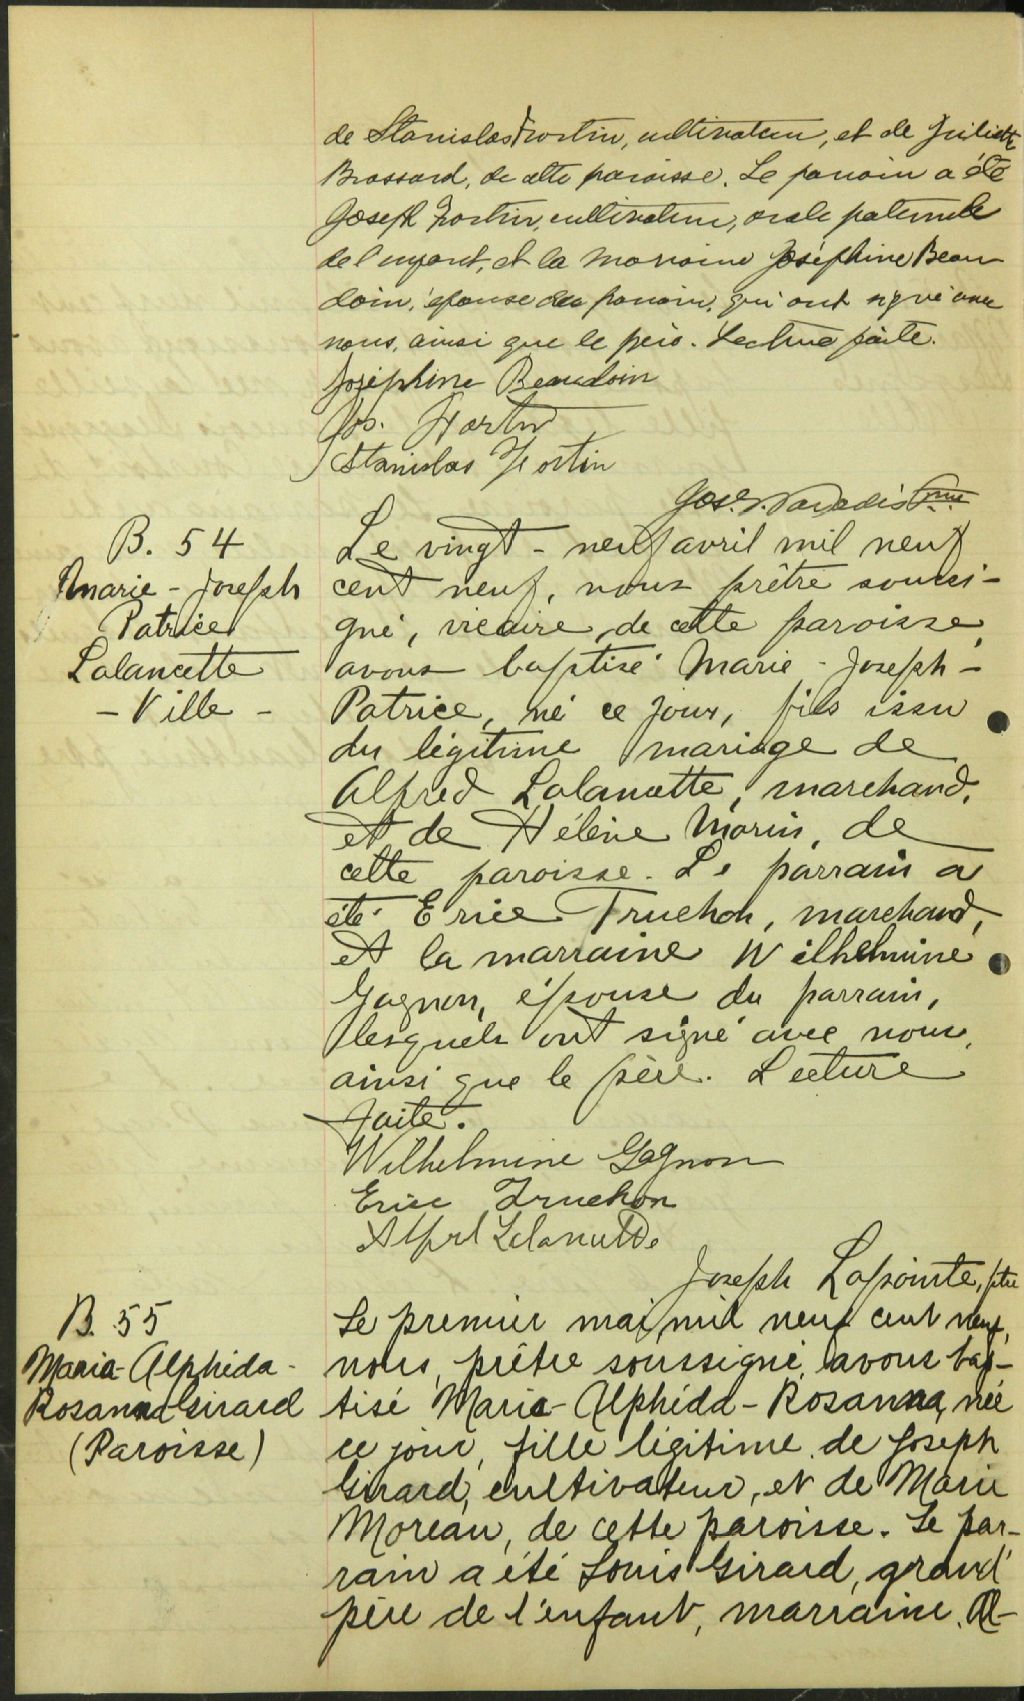 de Stanislas Fortin, cultivateur, et de Juliette
Brassard, de cette paroisse. Le parrain a été
Joseph Fortin, cultivateur, oncle paternele
de l'enfant, et la marraine Joséphine Beau-
doin, épouse du parrain, qui ont signé avec
nous, ainsi que le père. Lecture faite.
Joséphine Beaudoin
Jos. Fortin
Stanislas Fortin
B. 54
Marie-Joseph
Patrice
Lalancette
- Ville -
Le vingt-neuf avril mil neuf
cent neuf, nous prêtre soussi-
gné, vicaire de cette paroisse,
avons baptisé Marie-Joseph-
Patrice, né ce jour, fils issu
du légitime mariage de
Alfred Lalancette, marchand,
et de Hélène Morin, de
cette paroisse. Le parrain a
été Erice Truchon, marchand,
et la marraine Wilhelmine
Gagnon, épouse du parrain,
lesquels ont signé avec nous,
ainsi que le père. Lecture
faite.
Wilhelmine Gagnon
Erice Truchon
Alfred Lalancette
Joseph Lapointe, ptre
B. 55
Marie-Alphéda-
Rosanna Girard
(Paroisse)
Le premier mai mil neuf cent neuf,
nous, prêtre soussigné, avons bap-
tisé Marie-Alphéda-Rosanna, née
ce jour, fille légitime de Joseph
Girard, cultivateur, et de Marie
Moreau, de cette paroisse. Le par-
rain a été Louis Girard, grand'
père de l'enfant, marraine, Al-